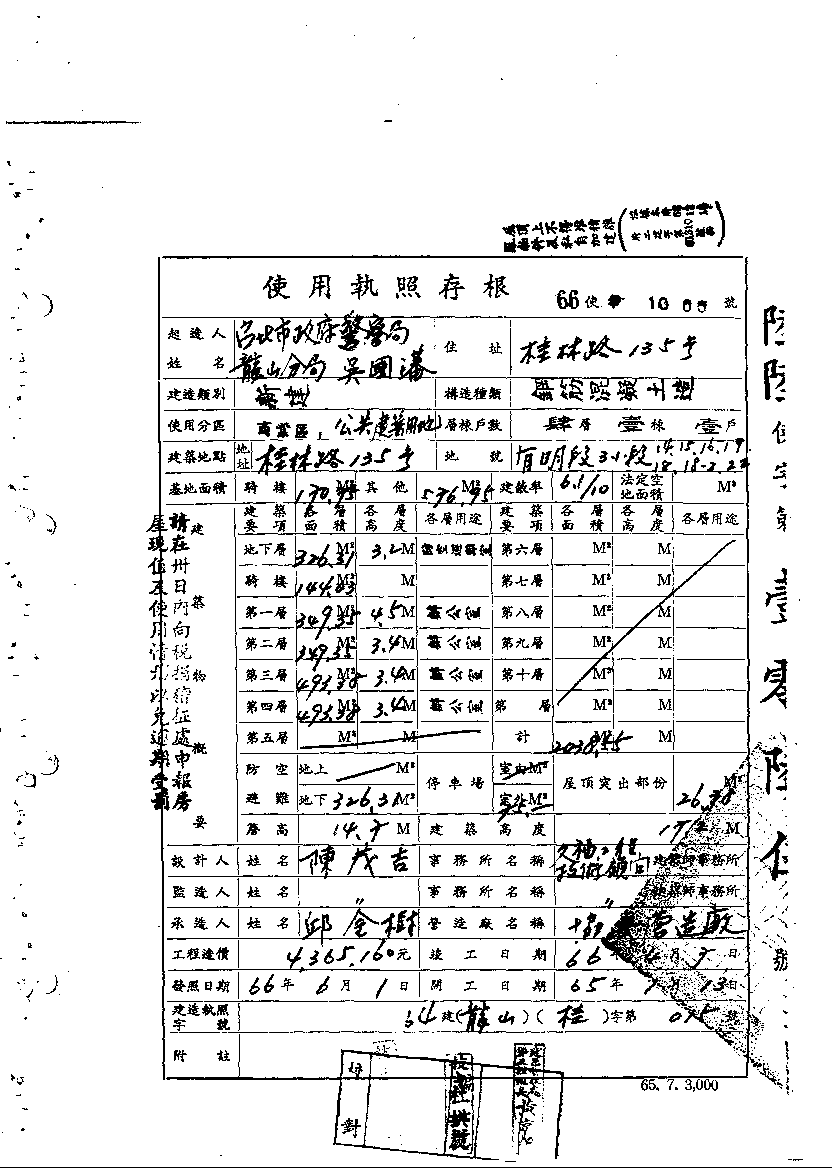 使用執照存根
66使 10 號
起造人 台北市政府警察局 住址 桂林路135号
姓名 龍山分局 吳國藩
建造類別 新建 構造種類 鋼筋混凝土造
使用分區 商業區，公共建築用地 層棟戶數 肆層 壹棟 壹戶
建築地點 地址 桂林路135号 地號 有明段3小段 14.15.16.17.
18.18-2.22
基地面積 騎樓 170.95 M² 其他 576.95 M² 建蔽率 6.1/10 法定空地面積 M²
建築要項 各層面積 各層高度 各層用途 建築要項 各層面積 各層高度 各層用途
地下層 326.31 M² 3.2 M 第六層 M² M
騎樓 144.83 M² M 第七層 M² M
第一層 349.35 M² 4.5 M 辦公室 第八層 M² M
第二層 349.35 M² 3.4 M 辦公室 第九層 M² M
第三層 493.38 M² 3.4 M 辦公室 第十層 M² M
第四層 493.38 M² 3.4 M 辦公室 第 層 M² M
第五層 M² M 計
防空 地上 M² 停車場 室內 M² 屋頂突出部份 M²
避難 地下 326.31 M² 室外 M² 26.38
簷高 14.7 M 建築高度 M
建築物概要
請在卅日內向稅捐稽征處申報房
屋現值及使用情形以免逾期受罰
設計人 姓名 陳茂吉 事務所名稱 技術顧問 建築師事務所
監造人 姓名 〃 事務所名稱 〃 建築師事務所
承造人 姓名 邱金樹 營造廠名稱 營造廠
工程造價 4,365,160元 竣工日期 66年 4月 日
發照日期 66年 6月 1日 開工日期 65年 月 13日
建造執照字號 64建(龍山)(桂)字第 075 號
附註
65. 7. 3,000
校對
使字第壹零陸 號